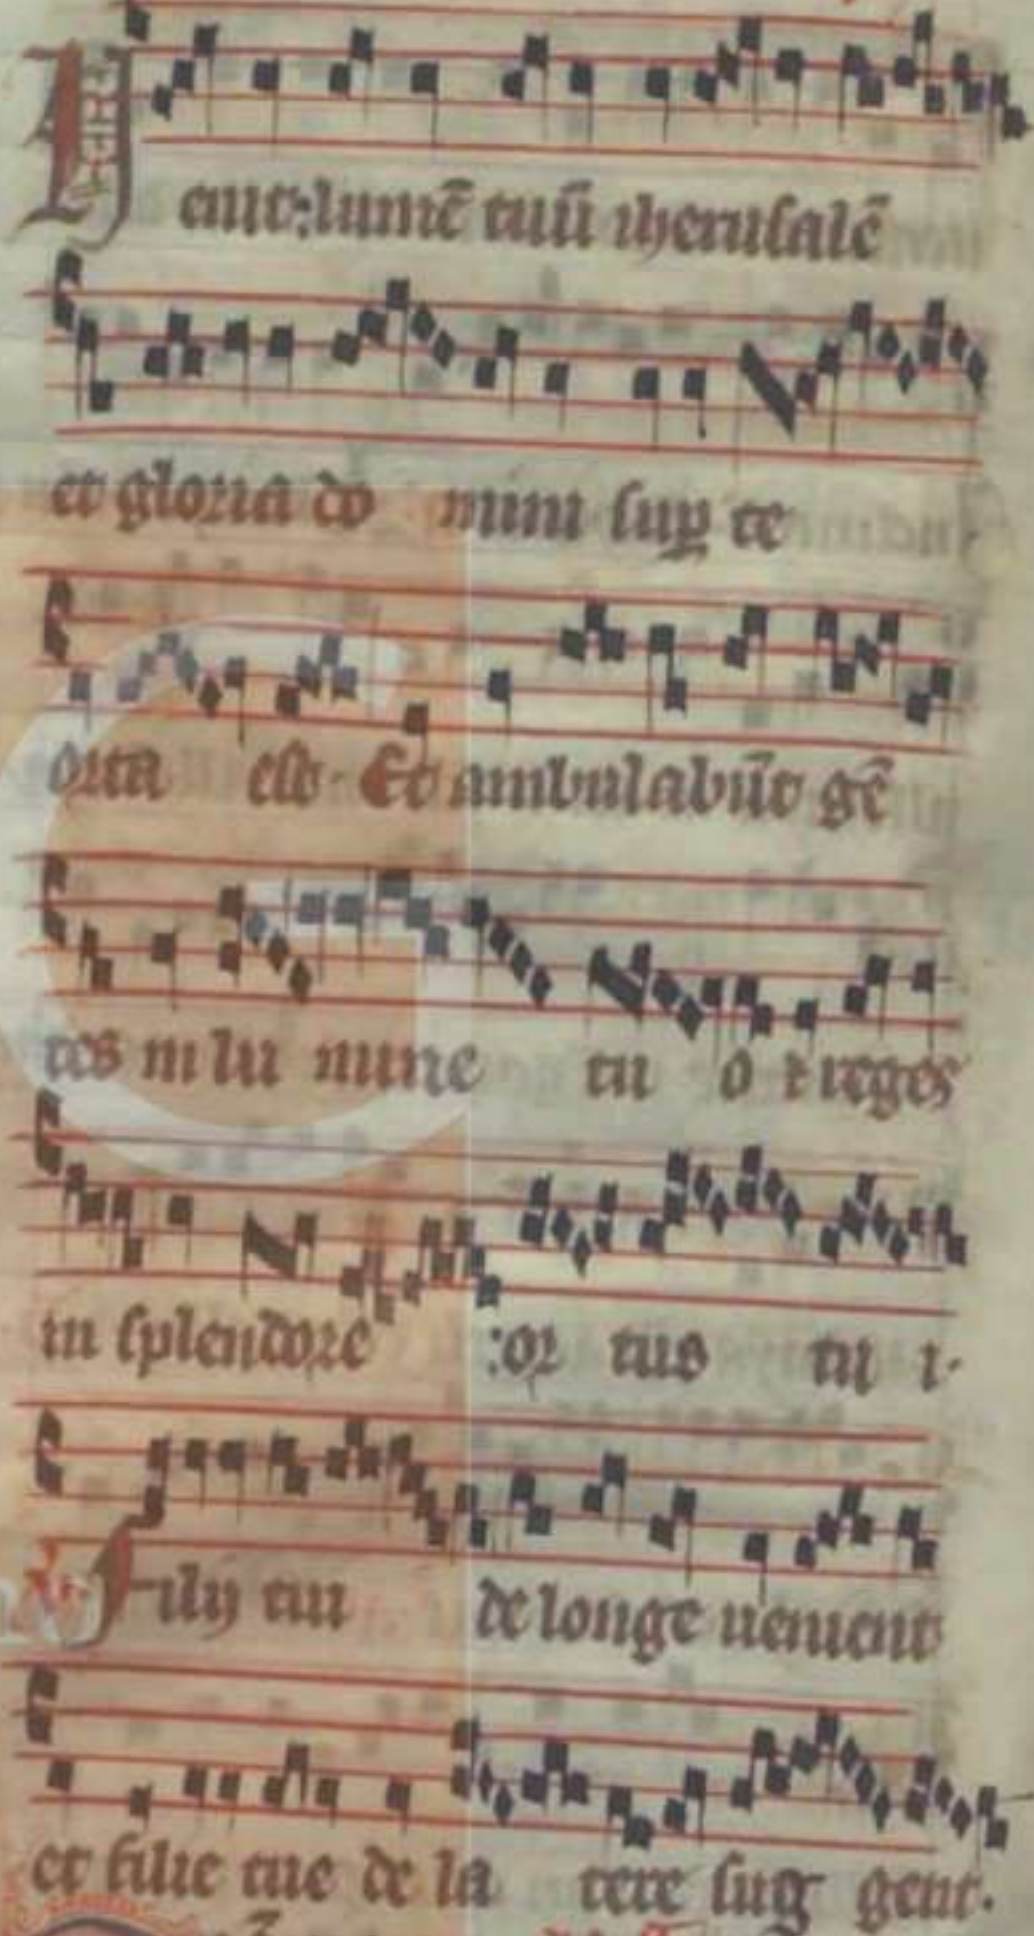 Uenit: lumē tuū iherusalē
et gloria do mini sup te
orta est. Et ambulabūt gē
tes in lu mine tu o et reges
in splendore :or tus tu i.
Filij tui de longe uenient
et filie tue de la tere surg gent.